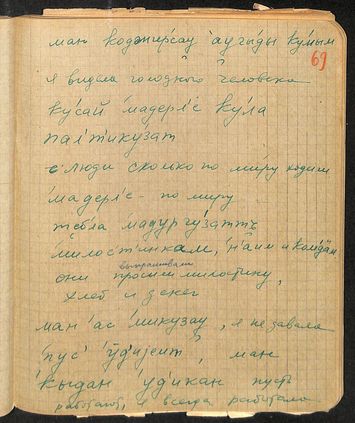 ман коджирсау 'аугы́ды ку́мым
69
я видела голодного человека
ку́сай 'мадерл'е ку́ла
пал'т'икузат
с люди сколько по миру ходили
'мадерл'е - по миру
тебла 'мадургузаттъ
'милост'инкам, 'н'аим и комдам
выпрашивали
они просили милостину,
хлеб и денег
ман 'ас 'микузау, я не давала
'пус' 'ӯд'иjеит, ман
'кыдан 'ӯд'икан пусть
работают, я всегда работала